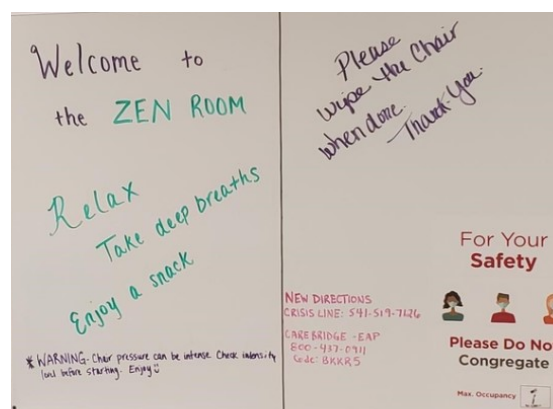 Welcome to
the ZEN ROOM
Relax
Take deep breaths
Enjoy a snack
* WARNING- Chair pressure can be intense Check intensity
level before starting. Enjoy
Please
wipe the Chair
when done.
Thank-You
NEW DIRECTIONS
CRISIS LINE: 541-519-7126
CAREBRIDGE -EAP
800-437-0911
Code: BKKR5
For Your
Safety
Please Do No
Congregate
Max. Occupancy